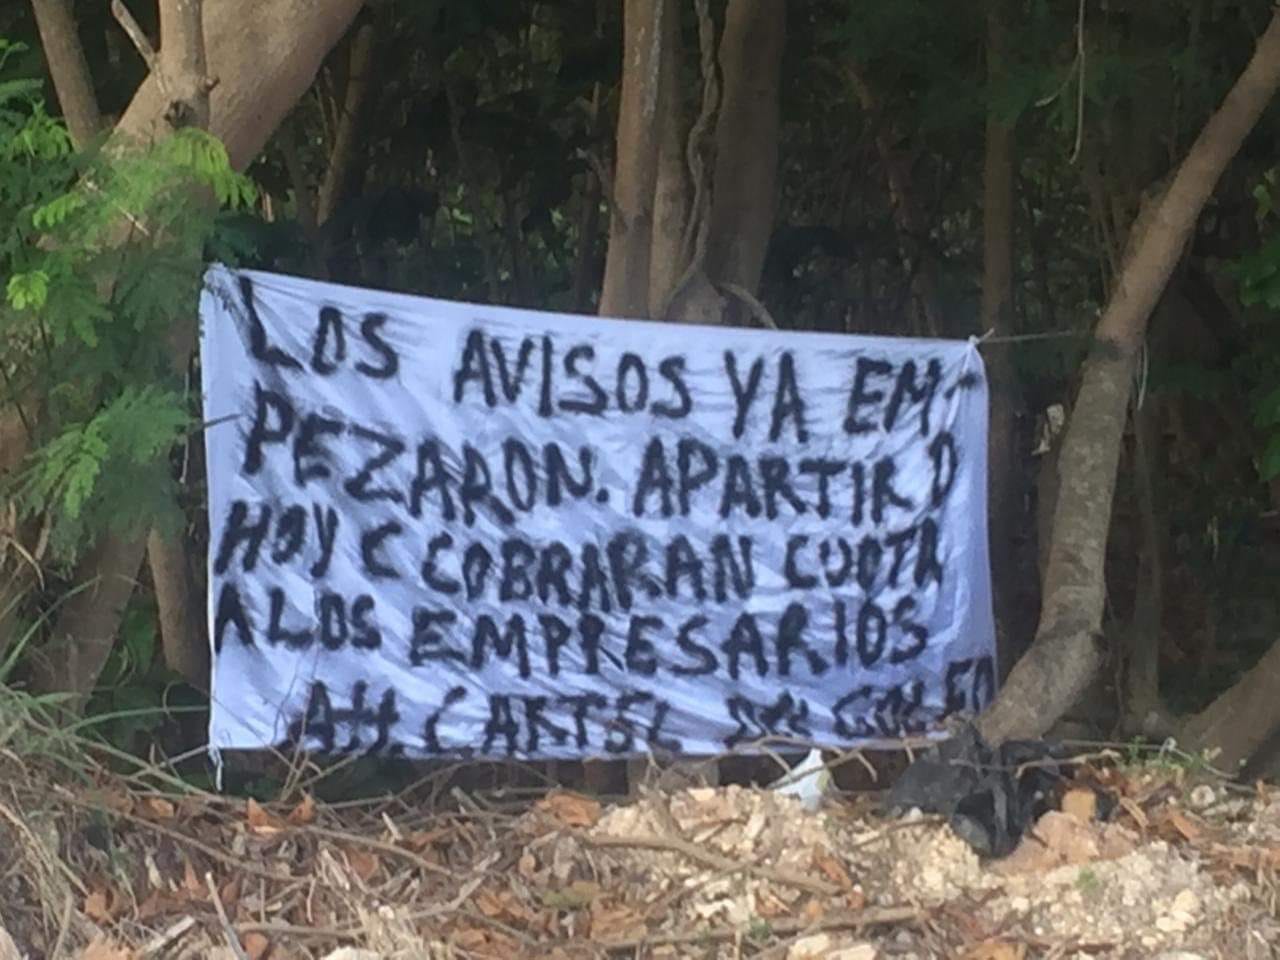 LOS AVISOS YA EM-
PEZARON. APARTIR D
HOY C COBRARAN CUOTA
A LOS EMPRESARIOS
Att. CARTEL DEL GOLFO